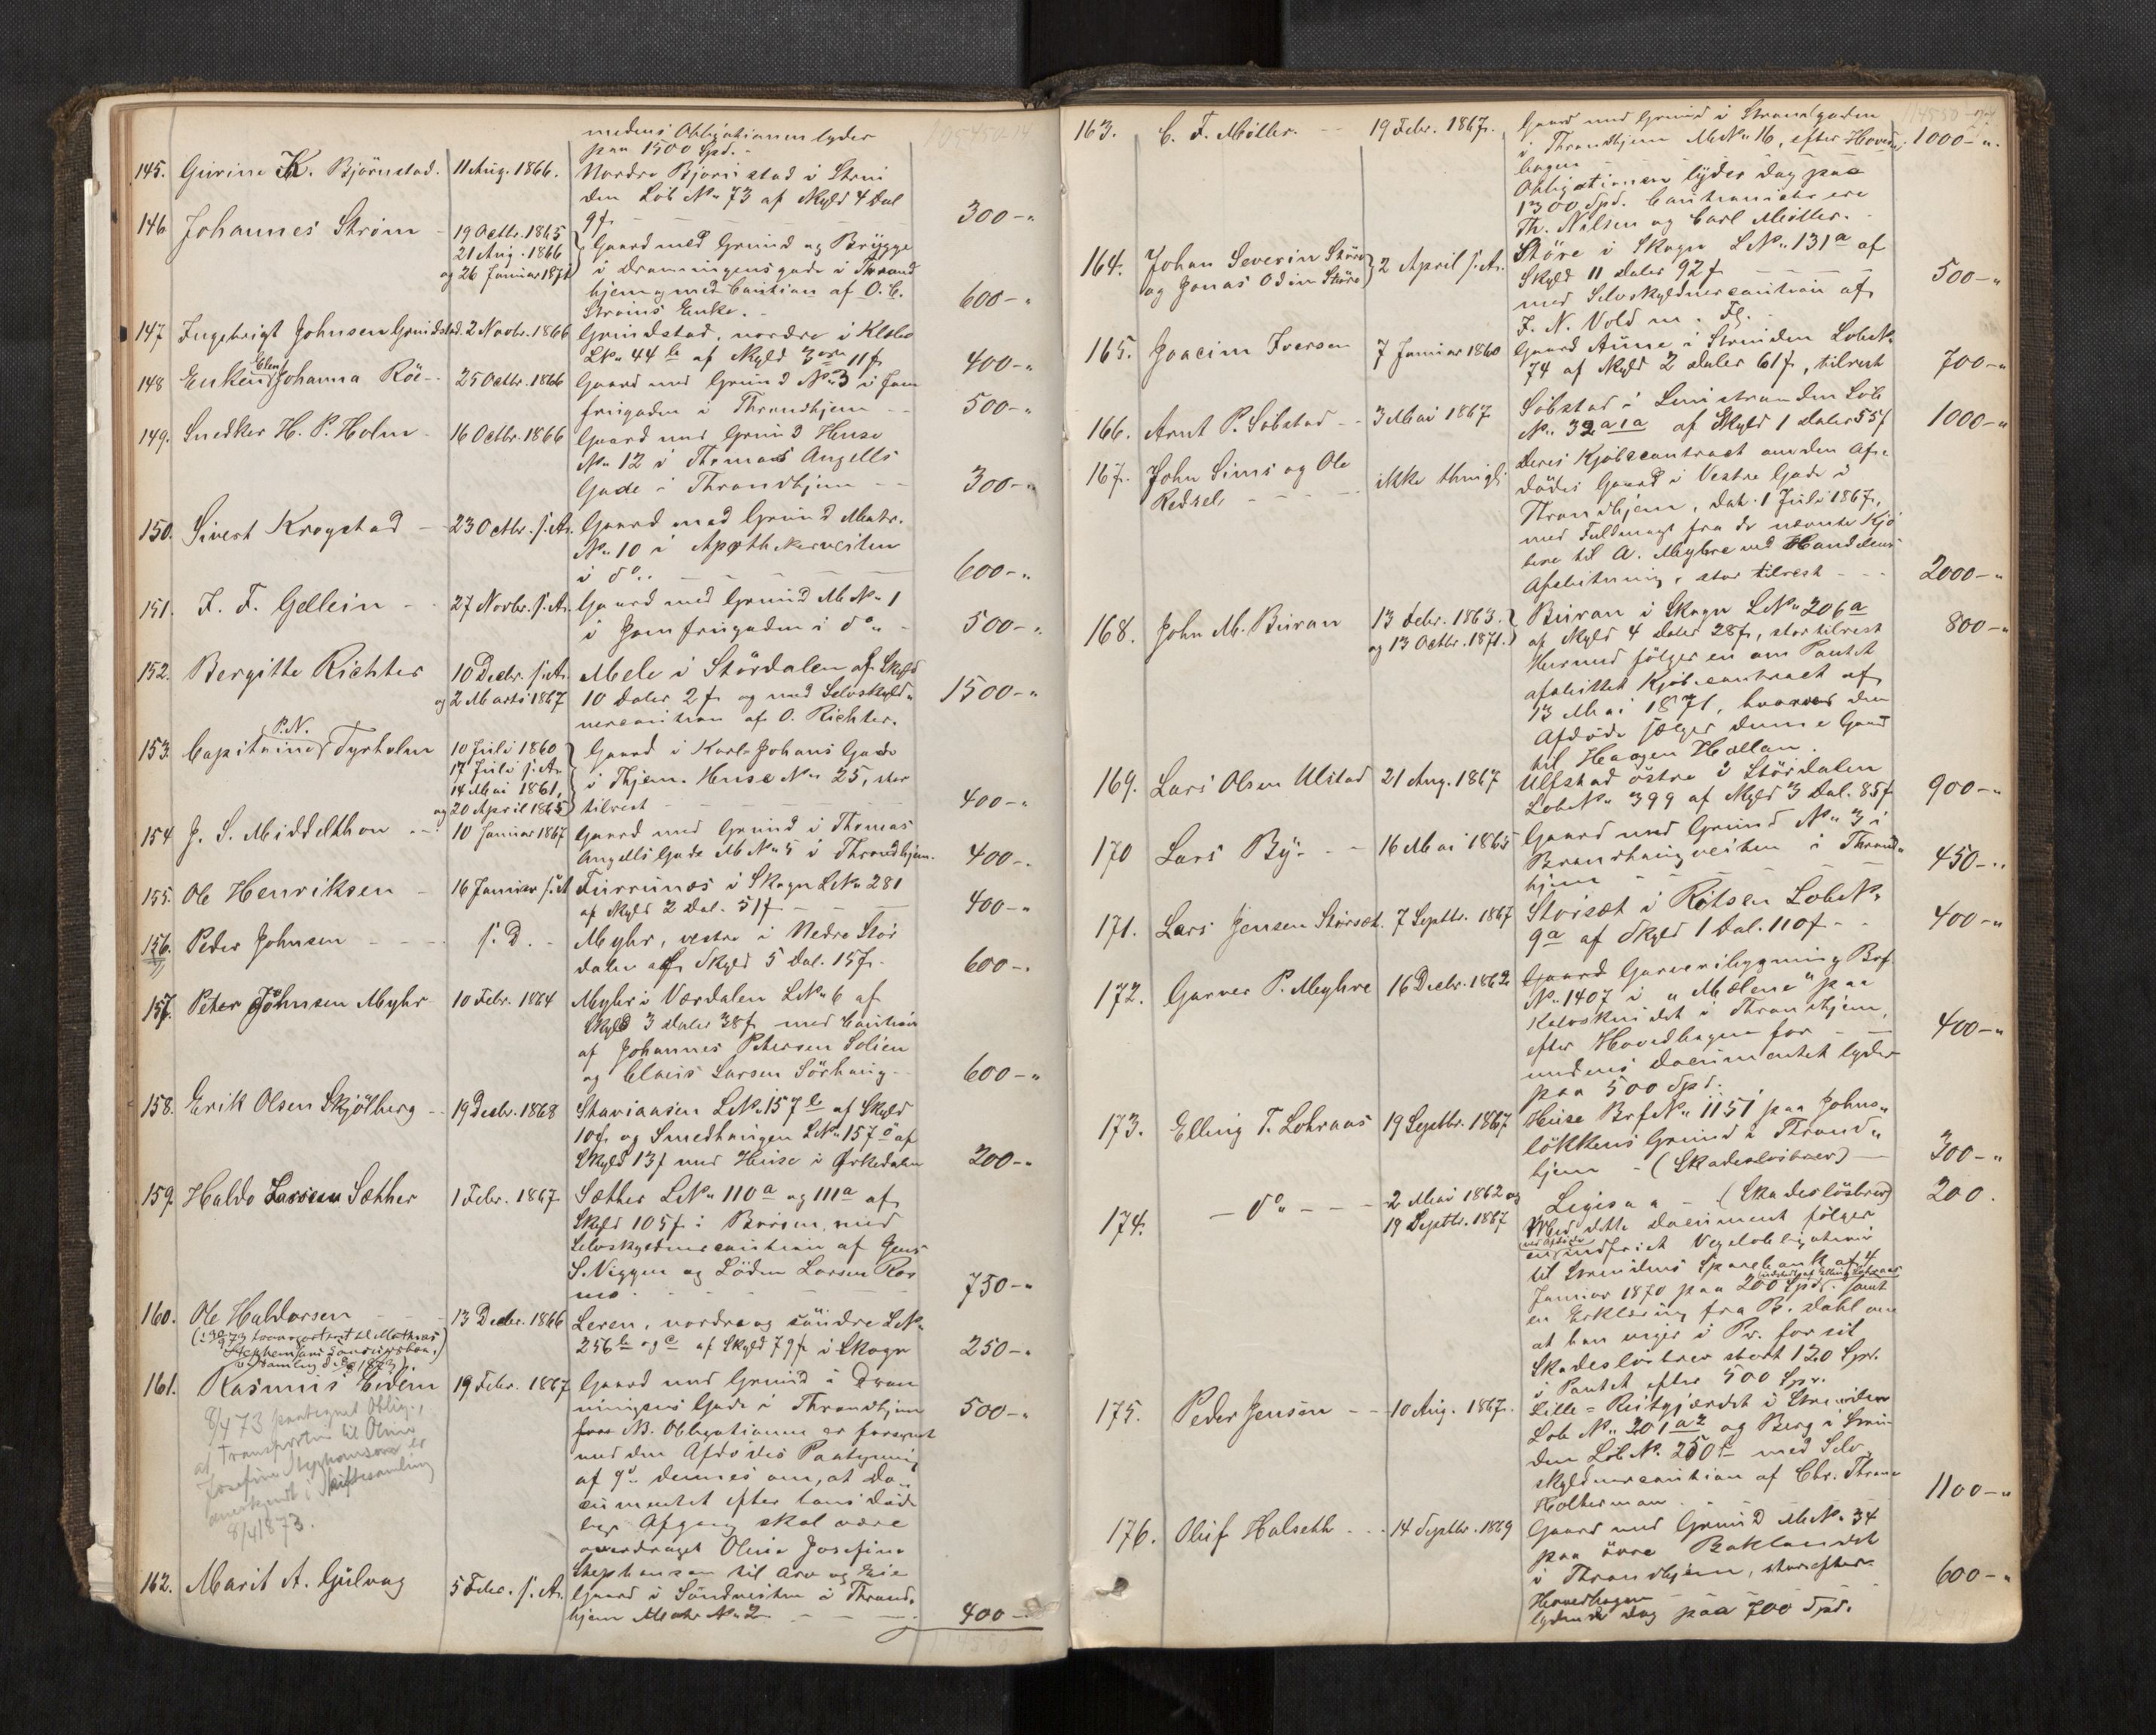 medens Obligationen lyder
paa 1500 Spd.
145. Gurine K. Björnstad. 11 Aug. 1866. Nordre Bjørnstad i Strin
den Löb No 73 af Skyld 4 Dal
9 f. 300-"
146 Johannes Strøm 19 Octbr. 1865
21 Aug. 1866
og 26 Januar 1871
Gaard med Grund og Brygge
i Dronningensgade i Thrond
hjem og med Caution af O. C.
Strøms Enke. 600-"
147 Ingebrigt Johnsen Grindstad. 2 Novbr. 1866 Grindstad, nordre i Klæbo
LNo 44 b af Skyld 3 11 f 400-"
148 Enken Johanna Röe 25 Octbr. 1866 Gaard med Grund No 3 i Jom
frugaden i Throndhjem 500-"
149. Snedker H. P. Holm 16 Octbr. 1866 Gaard med Grund Huse
No 12 i Thomas Angells
Gade i Throndhjem 300-"
150. Sivert Krogstad 23 Octbr. s. A. Gaard med Grund Matr.
No 10 i Apothekerveiten
i do. 600-"
151. J. F. Gellein 27 Novbr. s. A. Gaard med Grund M No 1
i Jomfrugaden i do 500-"
152. Bergitte Richter 10 Decbr. s. A.
og 2 Marts 1867
Mele i Stördalen af Skyld
10 Daler 2 f og med Selvskyld"
nercaution af O. Richter. 1500-"
153. Capitaine P.N. Tyrholm 10 Juli 1860
17 Juli s. A.
14 Mai 1861,
og 20 April 1865
Gaard i Karl-Johans Gade
i Thjem. Huse No 25, star
tilrest 400-"
154 J. S. Middelthon 10 Januar 1867 Gaard med Grund i Thomas
Angells Gade M No 5 i Throndhjem. 400-"
155. Ole Henriksen 16 Januar s. A Furrunes i Skogn LNo 281
af Skyld 2 Dal. 51 f 400-"
156. Peder Johnsen s. D. Myhr, vestre i Nedre Stör
dalen af Skyld 5 Dal. 15 f. 600-"
157. Peter Johnsen Myhr 10 Febr. 1864 Myhr i Værdalen LNo 6 af
Skyld 3 Daler 38 f med Caution
af Johannes Petersen Solien
og Claus Larsen Sörhaug 600-"
158. Erik Olsen Skjölberg 19 Decbr. 1868 Staviaasen LNo 157 b af Skyld
10 f. og Smedhaugen LNo 157 ö af
Skyld 13 f med Huse i Orkedalen 200-"
159. Haldo Larssen Sæther 1 Febr. 1867 Sæther LNo 110 a og 111 a af
Skyld 105 f i Börsen, med
Selvskyldnercaution af Jens
S. Viggen og Löden Larsen Ros
mo 750-"
160. Ole Haldorsen 13 Decbr. 1866 Leren, nordre og söndre LNo
256 b og c af Skyld 79 f i Skogn 250-"
161. Rasmus Eidem 19 Febr. 1867 Gaard med Grund i Dron
ningens Gade i Throndhjem 500-"
8/4 73 paategnet Oblig.,
at Transporten til Oline
Josefine Stephansen er
anerkjendt i Skiftesamling
8/4 1873.
NB. Obligationen er forsynet
med den Afdødes Paategning
af 9de dennes om, at Do"
cumentet efter hans död
lige Afgang skal være
overdraget Oline Josefine
Stephansen til Arv og Eie
162. Marit A. Gülvag 5 Febr. s. A. Gaard i Söndveiten i Thrond"
hjem Matr No 2 400-"
163. C. F. Möller. 19 Febr. 1867. Gaard med Grund i Strandgaden
i Throndhjem M No 16, efter Hoved
bogen 1000-"
Obligationen lyder dog paa
1300 Spd. Cautionister ere
Th. Nilsen og Carl Möller.
164. Johan Severin Störe
og Jonas Odin Störe
2 April s. A. Störe i Skogn LNo 131 a af
Skyld 11 Daler 92 f 500-"
med Selvskyldnercaution af
J. N. Vold m. Fl.
165. Joacim Iversen 7 Januar 1860 Gaard Aune i Strinden Lobe No
74 af Skyld 2 Daler 61 f, tilrest 700-"
166. Arnt P. Sobstad 3 Mai 1867 Sobstad i Leinstranden Löb
No 32 a 1 a af Skyld 1 Daler 55 f 1000-"
167. John Sims og Ole
Redsel, ikke thingl. Deres Kjöbecontract om den Af"
dödes Gaard i Vestre Gade i
Throndhjem, dat. 1 Juli 1867,
med Fuldmagt fra de nævnte Kjö
bere til A. Myhre ved Handelens
Afslutning, star tilrest 2000-"
168. John M. Buran 13 Febr. 1863.
og 13 Octbr. 1871.
Buran i Skogn LNo 206 a
af Skyld 4 Daler 28 f, star tilrest 800-"
Hermed fölger en om Pantet
afsluttet Kjöbecontract af
13 Mai 1871, hvorved den
Afdöde sælger denne Gaard
til Haagen Hallan.
169. Lars Olsen Ulstad 21 Aug. 1867 Ulfstad östre i Stördalen
Lobe No 399 af Skyld 3 Dal. 85 f 900-"
170 Lars By 16 Mai 1865 Gaard med Grund No 3 i
Brandhaugveiten i Thrond"
hjem 450-"
171. Lars Jensen Störset. 7 Septbr. 1867 Storsæt i Ritsen Lobe No
9 a af Skyld 1 Dal. 110 f 400-"
172. Garver P. Myhre 16 Decbr. 1862 Gaard Garveribygning Brf.
No 1407 i "Mælene" paa
Kalvskindet i Throndhjem,
efter Hovedbogen for 400-"
medens Documentet lyder
paa 500 Spd.
173. Elling T. Lohraas 19 Septbr. 1867 Huse Brf No 1151 paa Johns"
lökkens Grund i Thrond"
hjem (Skadeslösbrev) 300-"
174. do 2 Mai 1862 og
19 Septbr. 1867
(Skadeslösbrev) 200.
Med dette Document fölger
en indfriet Vexelobligation
til Strindens Sparebank af 4
Januar 1870 paa 200 Spd. samt
en Erklæring fra B. Dahl om
at han eier i Pr. for sit
Skadeslösbrev stort 120 Spd.
i Pantet efter 500 Spd.
175. Peder Jensen 10 Aug. 1867. Lille=Reitgjærdet i Strinden
Lobe No 201 a 2 og Berg i Strin
den Löb No 250 c med Selv"
skyldnercaution af Chr. Thrane
Kolterman 1100-"
176. Oluf Halseth 14 Septbr. 1869 Gaard med Grund M No 34
paa övre Baklandet
i Throndhjem, star efter
Hovedbogen 600-"
lydende dog paa 700 Spd.